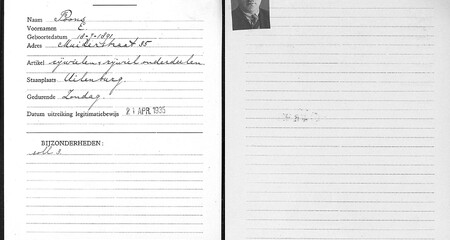 Naam Bons
Voornamen E.
Geboortedatum 18-3-1891
Adres Muiderstraat 35
Artikel rijwielen & rijwiel onderdeelen
Staanplaats Uilenburg.
Gedurende Zondag.
Datum uitreiking legitimatiebewijs 24 APR. 1935
BIJZONDERHEDEN: